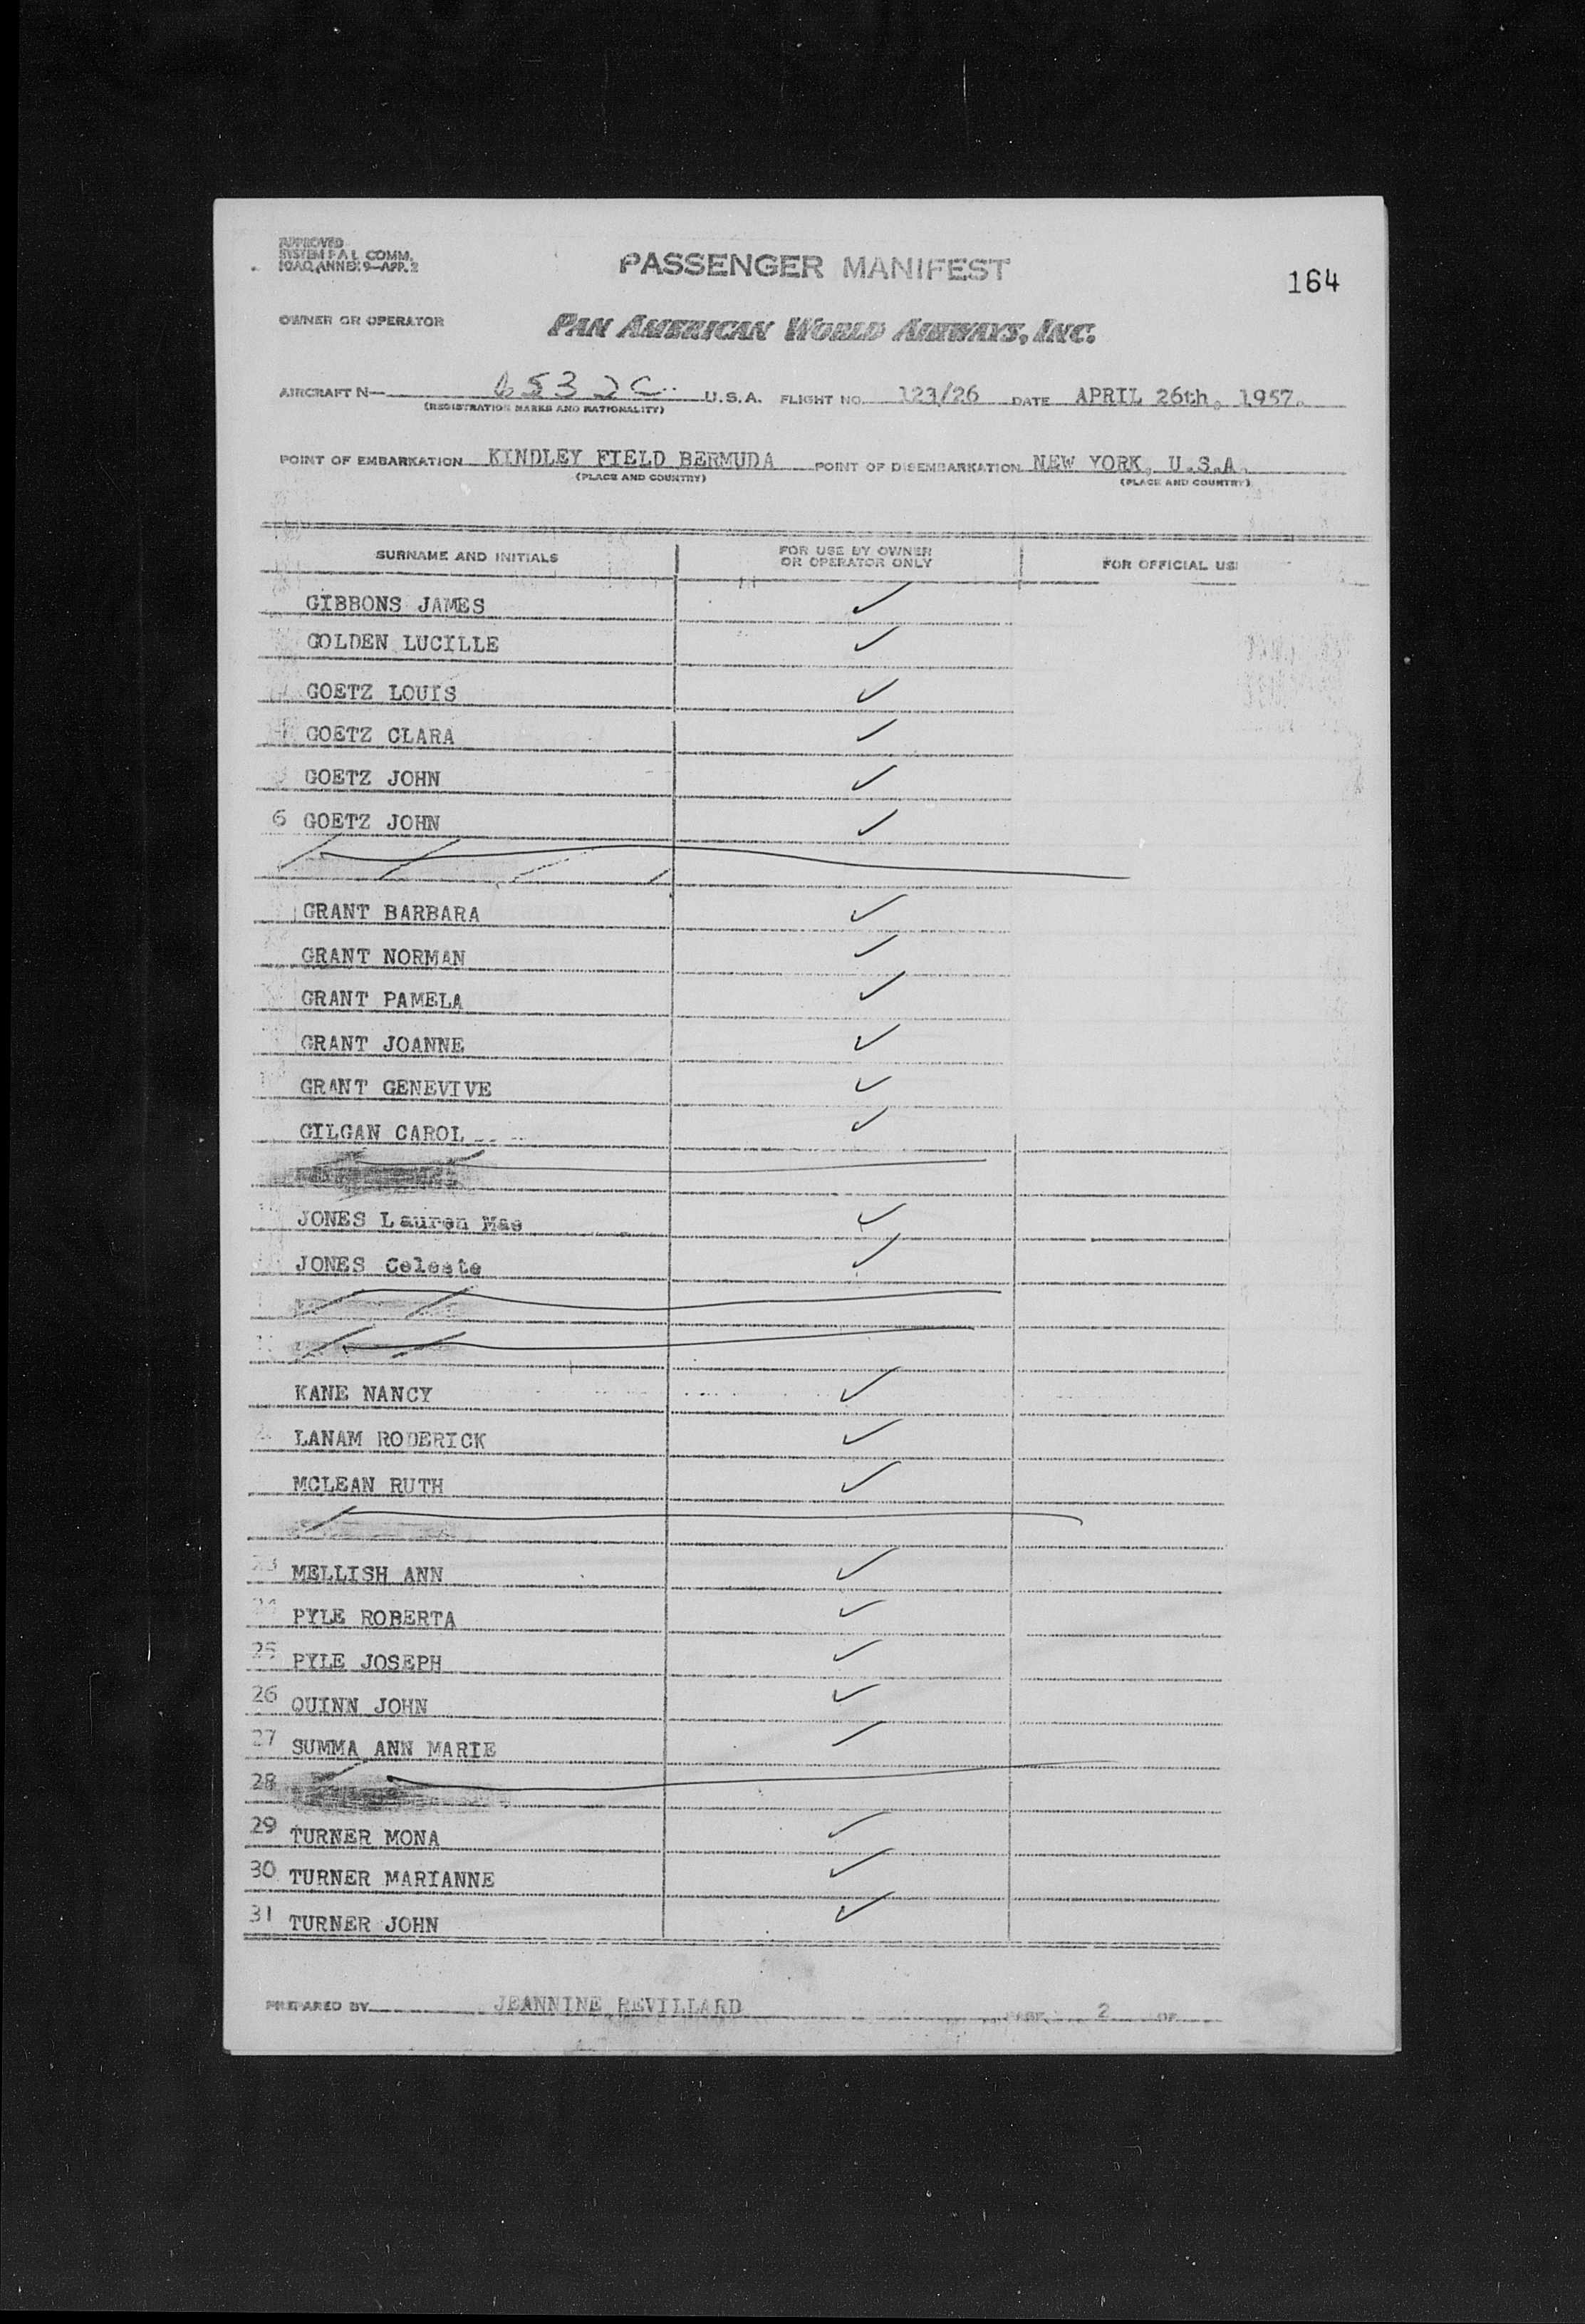 APPROVED
SYSTEM F A L COMM.
ICAO, ANNEX 9—APP. 2
PASSENGER MANIFEST
164
OWNER OR OPERATOR
PAN AMERICAN WORLD AIRWAYS, INC.
AIRCRAFT N— 6532C U.S.A. FLIGHT NO. 123/26 DATE APRIL 26th, 1957.
(REGISTRATION MARKS AND NATIONALITY)
POINT OF EMBARKATION KINDLEY FIELD BERMUDA POINT OF DISEMBARKATION NEW YORK, U.S.A.
(PLACE AND COUNTRY) (PLACE AND COUNTRY)
SURNAME AND INITIALS FOR USE BY OWNER OR OPERATOR ONLY FOR OFFICIAL USE
GIBBONS JAMES ✓
GOLDEN LUCILLE ✓
GOETZ LOUIS ✓
GOETZ CLARA ✓
GOETZ JOHN ✓
6 GOETZ JOHN ✓
GRANT BARBARA ✓
GRANT NORMAN ✓
GRANT PAMELA ✓
GRANT JOANNE ✓
GRANT GENEVIVE ✓
GILGAN CAROL ✓
JONES Lauren Mae ✓
JONES Celeste ✓
KANE NANCY ✓
LANAM RODERICK ✓
MCLEAN RUTH ✓
23 MELLISH ANN ✓
24 PYLE ROBERTA ✓
25 PYLE JOSEPH ✓
26 QUINN JOHN ✓
27 SUMMA ANN MARIE ✓
28
29 TURNER MONA ✓
30 TURNER MARIANNE ✓
31 TURNER JOHN ✓
PREPARED BY JEANNINE REVILLARD PAGE 2 OF